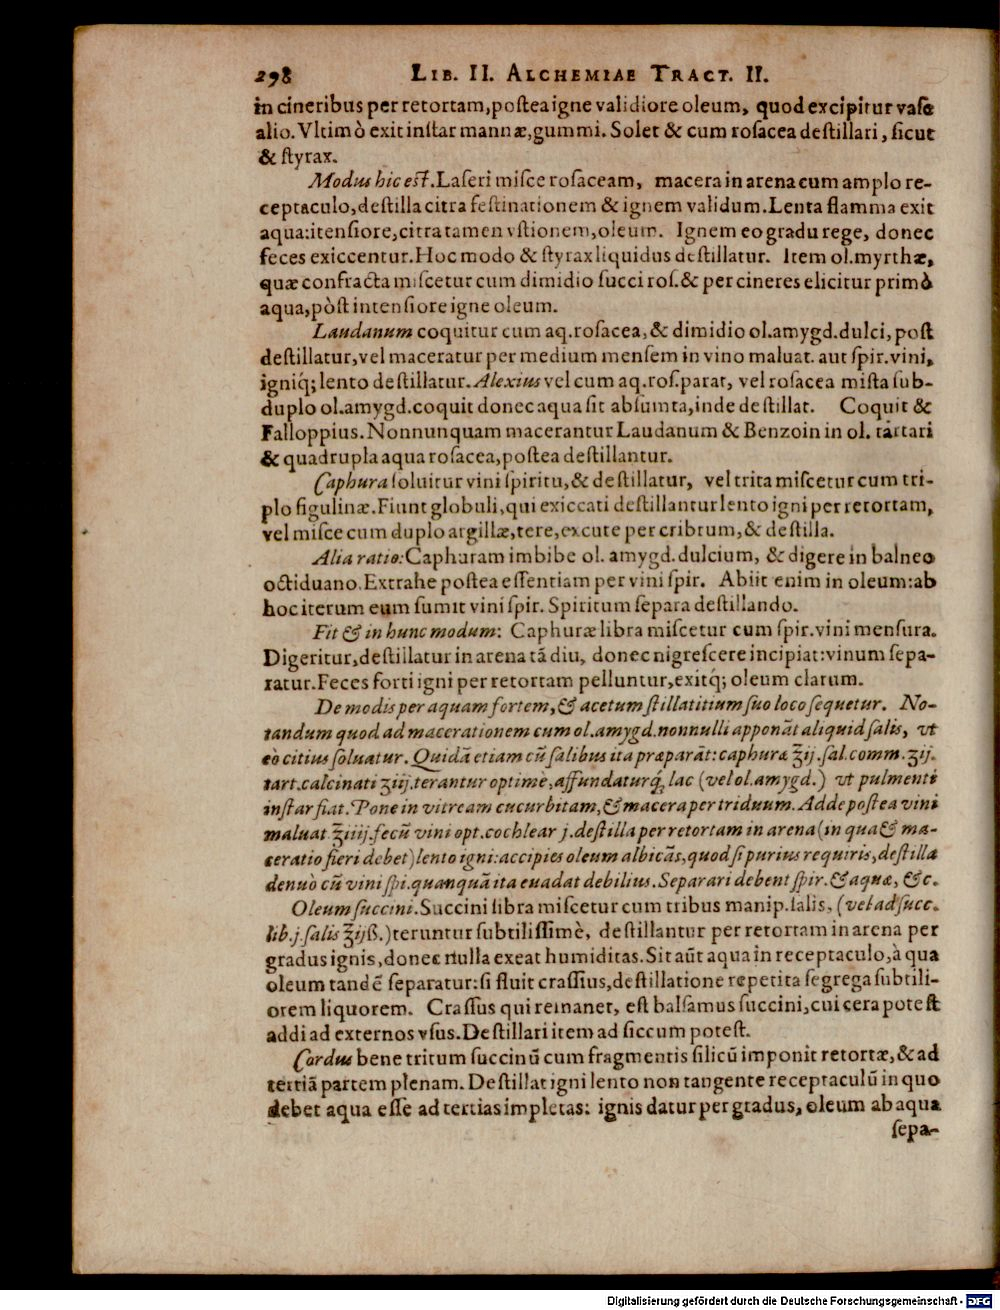 298 LIB. II. ALCHEMIAE TRACT. II.
in cineribus per retortam, postea igne validiore oleum, quod excipitur vase
alio. Vltimò exit instar mannæ, gummi. Solet & cum rosacea destillari, sicut
& styrax.
Modus hic est. Laseri misce rosaceam, macera in arena cum amplo re-
ceptaculo, destilla citra festinationem & ignem validum. Lenta flamma exit
aqua: itensiore, citra tamen vstionem, oleum. Ignem eo gradu rege, donec
feces exiccentur. Hoc modo & styrax liquidus destillatur. Item ol. myrthæ,
quæ confracta miscetur cum dimidio succi ros. & per cineres elicitur primò
aqua, pòst intensiore igne oleum.
Laudanum coquitur cum aq. rosacea, & dimidio ol. amygd. dulci, post
destillatur, vel maceratur per medium mensem in vino maluat. aut spir. vini,
igniq́; lento destillatur. Alexius vel cum aq. ros. parat, vel rosacea mista sub-
duplo ol. amygd. coquit donec aqua sit absumta, inde destillat. Coquit &
Falloppius. Nonnunquam macerantur Laudanum & Benzoin in ol. tartari
& quadrupla aqua rosacea, postea destillantur.
Caphura soluitur vini spiritu, & destillatur, vel trita miscetur cum tri-
plo figulinæ. Fiunt globuli, qui exiccati destillantur lento igni per retortam,
vel misce cum duplo argillæ, tere, excute per cribrum, & destilla.
Alia ratio: Caphuram imbibe ol. amygd. dulcium, & digere in balneo
octiduano. Extrahe postea essentiam per vini spir. Abiit enim in oleum: ab
hoc iterum eum sumit vini spir. Spiritum separa destillando.
Fit & in hunc modum: Caphuræ libra miscetur cum spir. vini mensura.
Digeritur, destillatur in arena tā diu, donec nigrescere incipiat: vinum sepa-
ratur. Feces forti igni per retortam pelluntur, exitq́; oleum clarum.
De modis per aquam fortem, & acetum stillatitium suo loco sequetur. No-
tandum quod ad macerationem cum ol. amygd. nonnulli apponāt aliquid salis, vt
eò citius soluatur. Quidā etiam cū salibus ita præparāt: caphuræ ℥ij. sal. comm. ʒij.
tart. calcinati ʒiij. terantur optimè, affundaturq́; lac (vel ol. amygd.) vt pulmenti
instar fiat. Pone in vitream cucurbitam, & macera per triduum. Adde postea vini
maluat ℥iiij. fecū vini opt. cochlear j. destilla per retortam in arena (in qua & ma-
ceratio fieri debet) lento igni: accipies oleum albicās, quod si purius requiris, destilla
denuò cū vini spi. quanquā ita euadat debilius. Separari debent spir. & aqua, &c.
Oleum succini. Succini libra miscetur cum tribus manip. salis, (vel ad succ.
lib. j. salis ℥ijß.) teruntur subtilissimè, destillantur per retortam in arena per
gradus ignis, donec nulla exeat humiditas. Sit aūt aqua in receptaculo, à qua
oleum tandē separatur: si fluit crassius, destillatione repetita segrega subtili-
orem liquorem. Crassus qui remanet, est balsamus succini, cui cera potest
addi ad externos vsus. Destillari item ad siccum potest.
Cordus bene tritum succinū cum fragmentis silicū imponit retortæ, & ad
tertiā partem plenam. Destillat igni lento non tangente receptaculū in quo
debet aqua esse ad tertias impletas: ignis datur per gradus, oleum ab aqua
sepa-
Digitalisierung gefördert durch die Deutsche Forschungsgemeinschaft - DFG